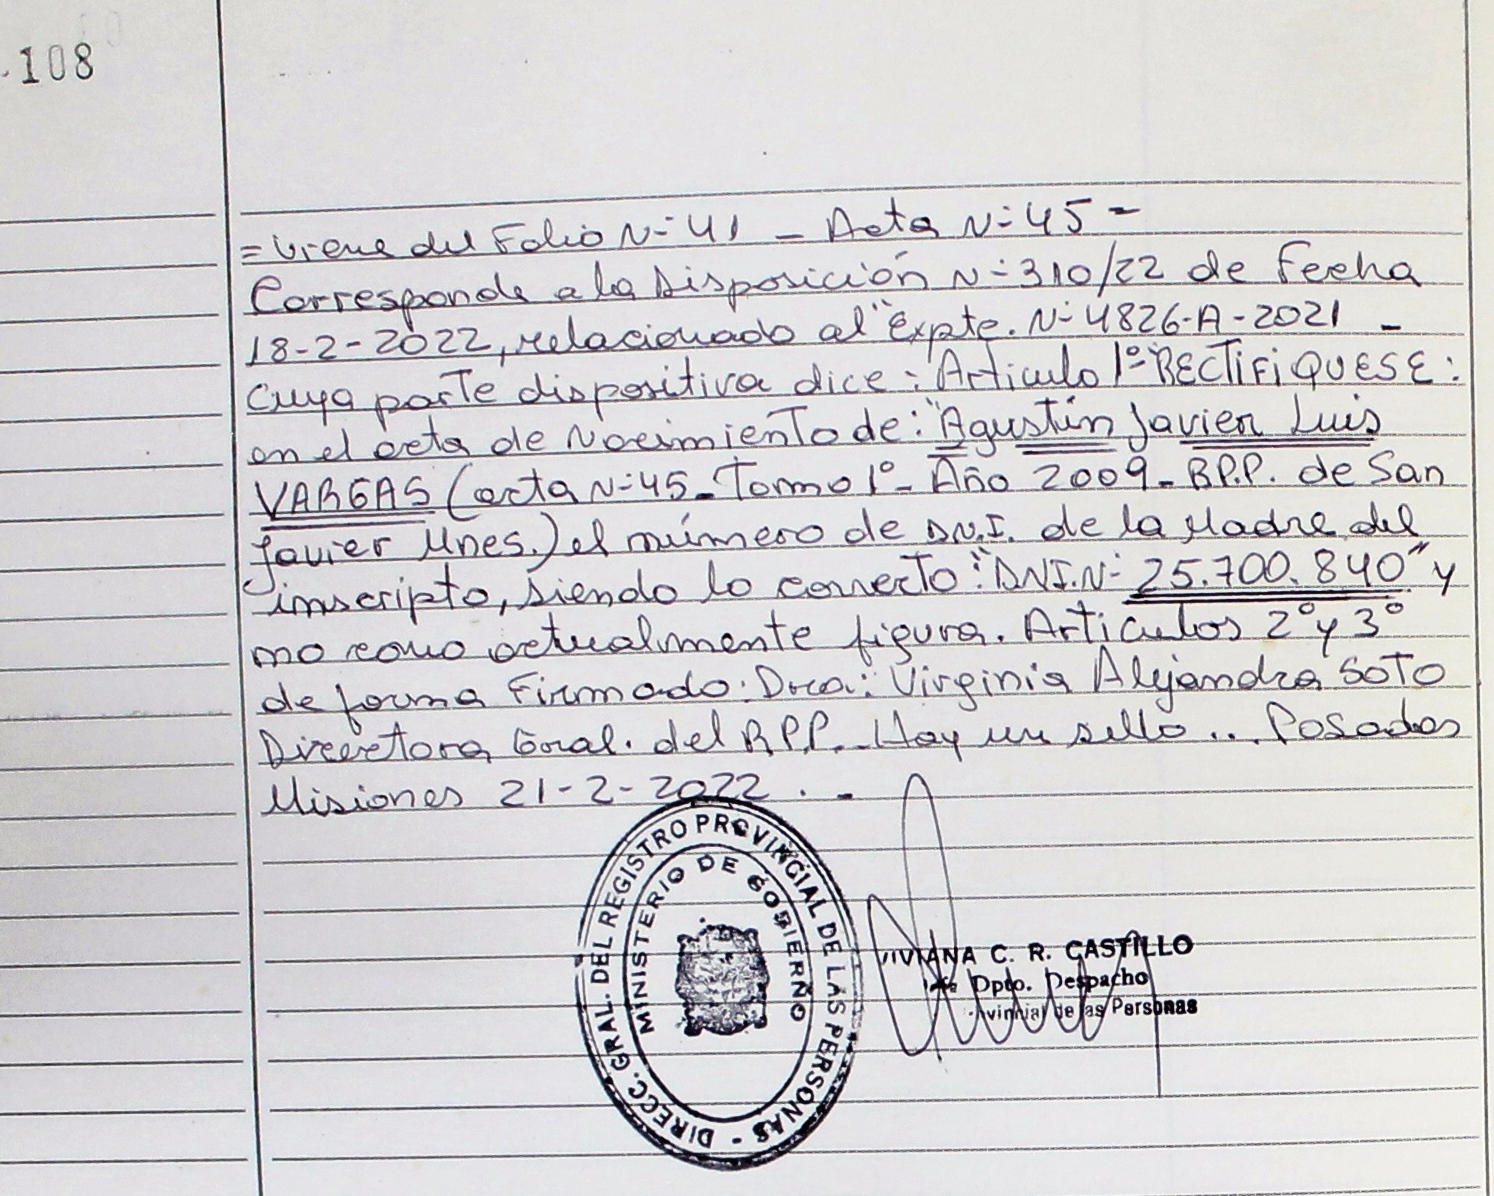 108
= Viene del Folio N-41 - Acta N-45 -
Corresponde a la Disposición N-310/22 de Fecha
18-2-2022, relacionado al "Expte. N-4826-A-2021 -
cuya parte dispositiva dice: Articulo 1º RECTIFIQUESE:
en el acta de Nacimiento de: "Agustín Javier Luis
VARGAS (acta N-45 - Tomo 1º - Año 2009 - RPP. de San
Javier Mnes.) el número de D.N.I. de la Madre del
inscripto, siendo lo correcto: "DNI.N- 25.700.840" y
no como actualmente figura. Articulos 2º y 3º
de forma Firmado: Dra.: Virginia Alejandra SOTO
Directora Gral. del R.P.P. - Hay un sello ... Posadas
Misiones 21-2-2022 . -
DIRECC. GRAL. DEL REGISTRO PROVINCIAL DE LAS PERSONAS -
MINISTERIO DE GOBIERNO
VIVIANA C. R. CASTILLO
Dpto. Despacho
de las Personas